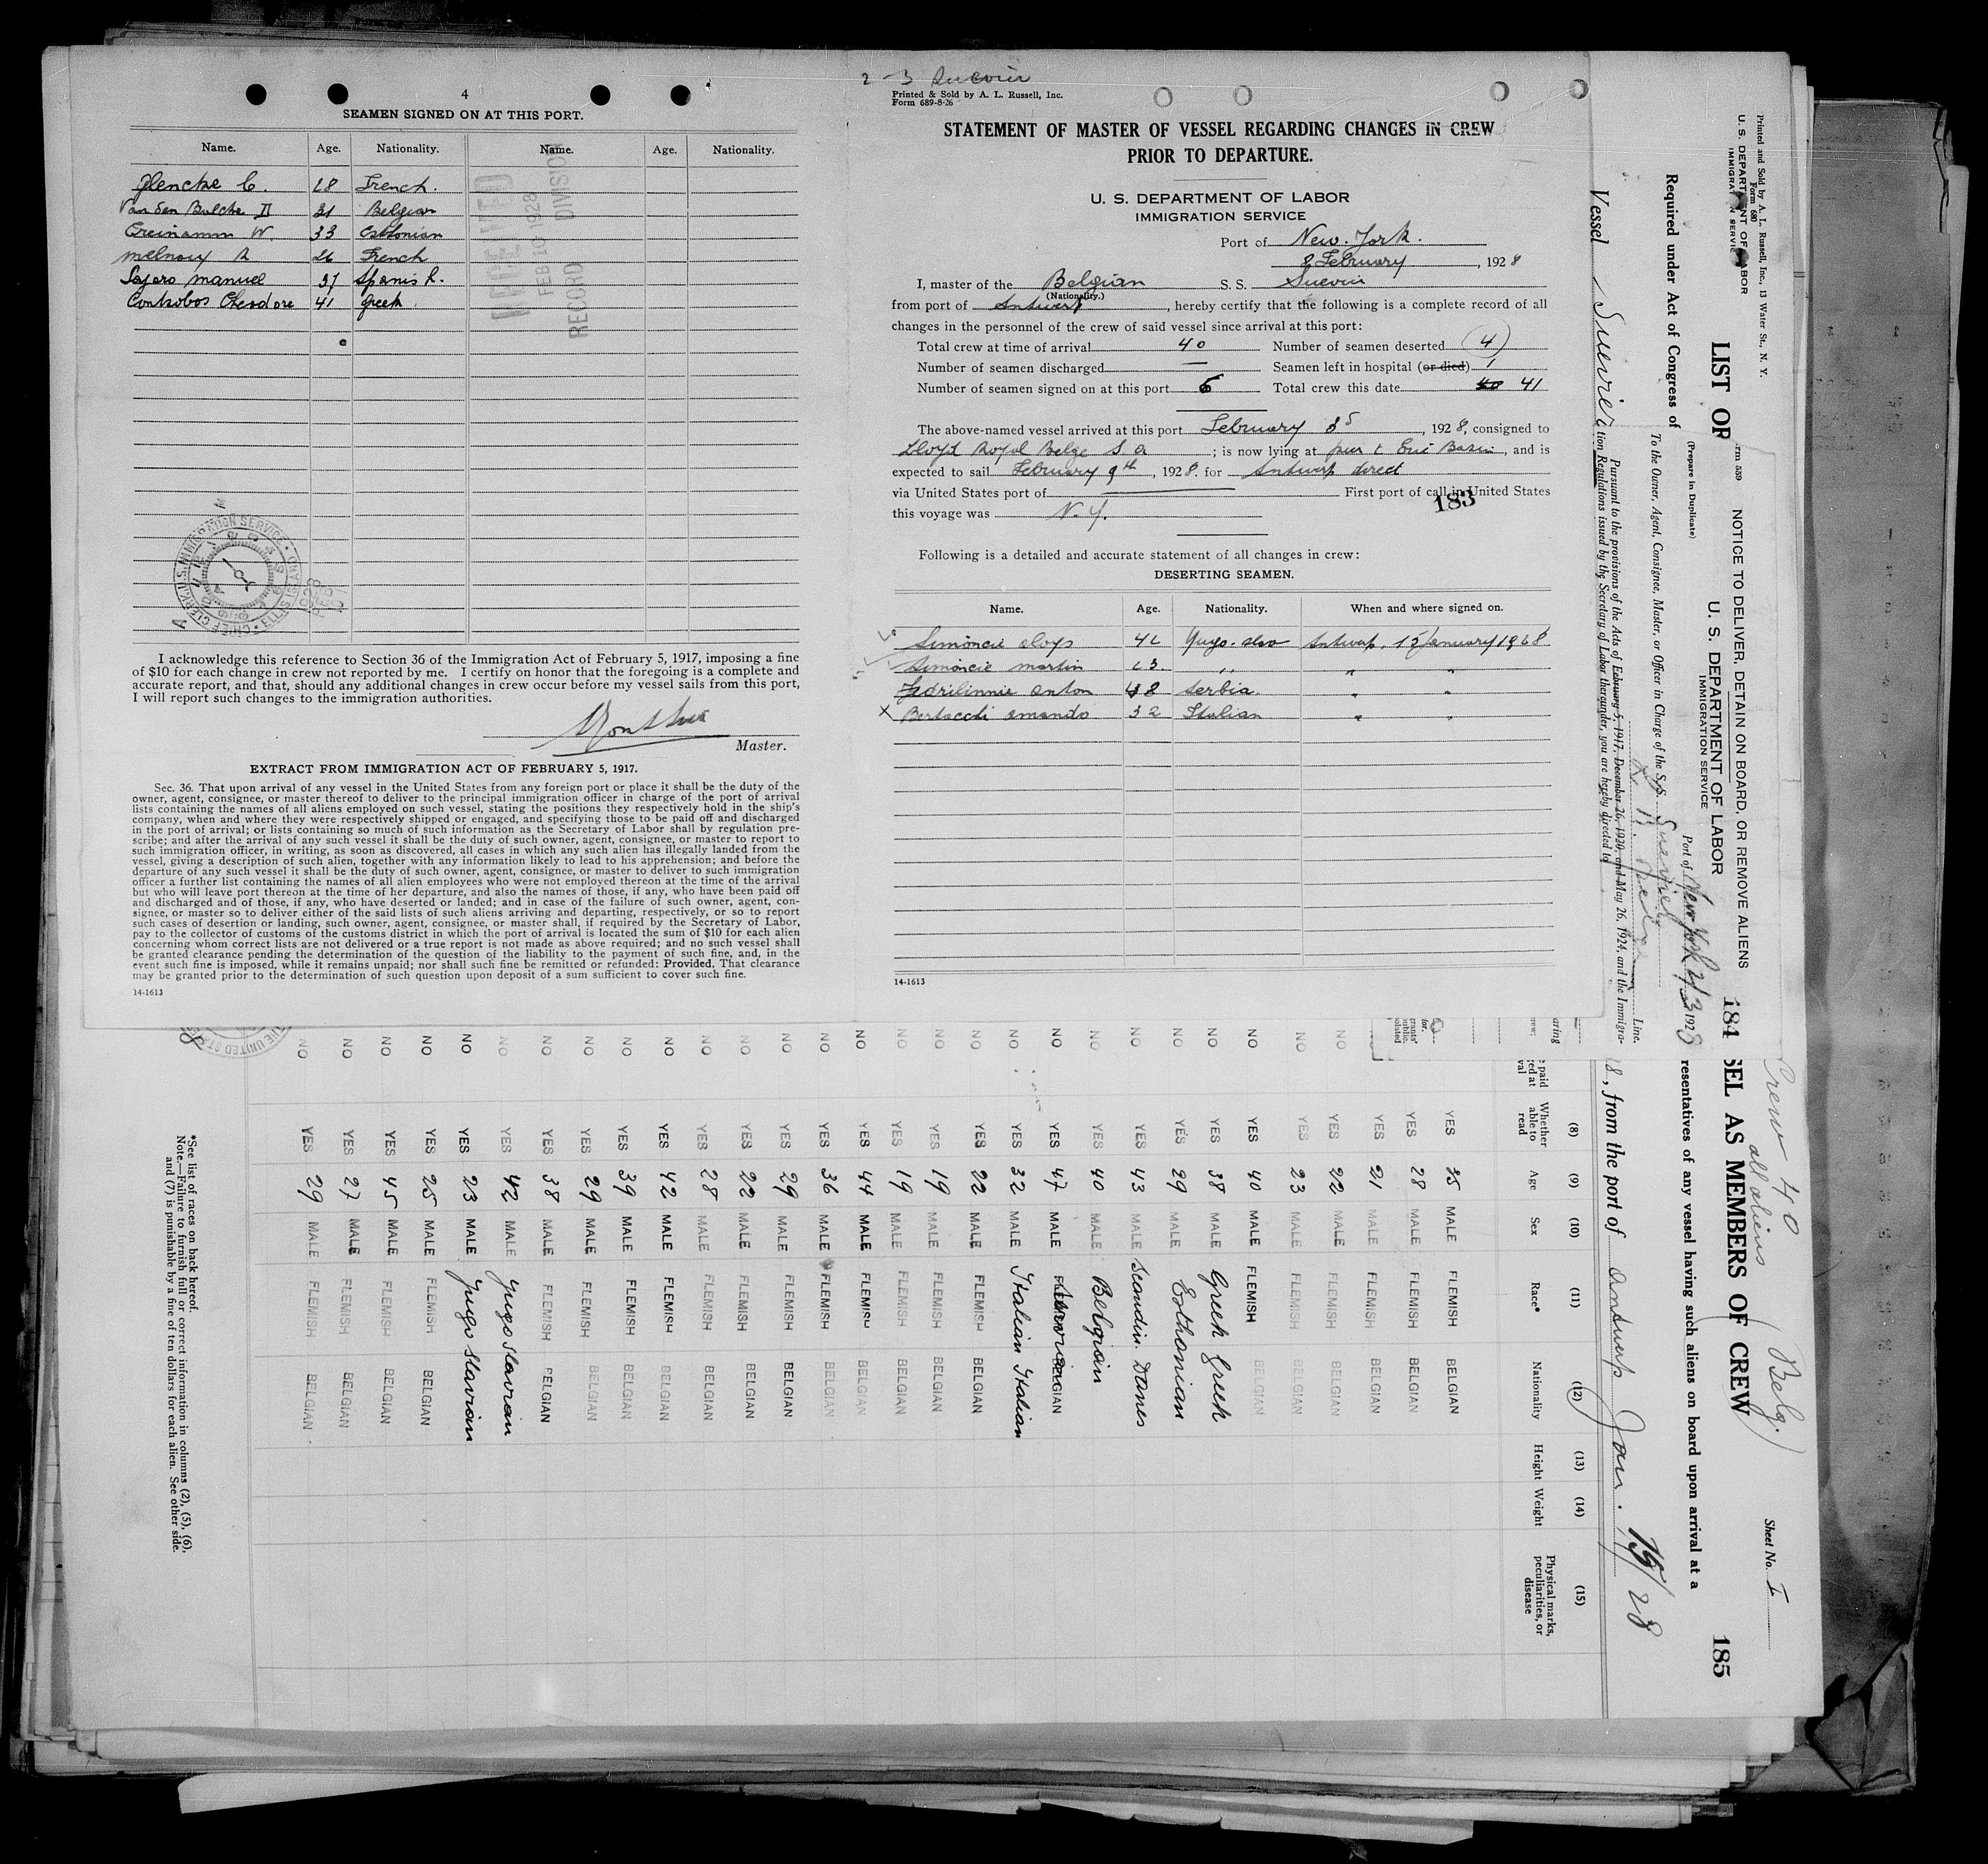 4
SEAMEN SIGNED ON AT THIS PORT.
Name. Age. Nationality. Name. Age. Nationality.
Glencke C. 28 French.
Van den Bulcke D 31 Belgian
Creinamm W. 33 Esthonian
Melnoux R 26 French
Manuel 37 Spanish.
Theodore 41 Greek
RECEIVED
FEB 10 1928
RECORD DIVISION
I acknowledge this reference to Section 36 of the Immigration Act of February 5, 1917, imposing a fine
of $10 for each change in crew not reported by me. I certify on honor that the foregoing is a complete and
accurate report, and that, should any additional changes in crew occur before my vessel sails from this port,
I will report such changes to the immigration authorities.
Master.
EXTRACT FROM IMMIGRATION ACT OF FEBRUARY 5, 1917.
Sec. 36. That upon arrival of any vessel in the United States from any foreign port or place it shall be the duty of the
owner, agent, consignee, or master thereof to deliver to the principal immigration officer in charge of the port of arrival
lists containing the names of all aliens employed on such vessel, stating the positions they respectively hold in the ship's
company, when and where they were respectively shipped or engaged, and specifying those to be paid off and discharged
in the port of arrival; or lists containing so much of such information as the Secretary of Labor shall by regulation pre-
scribe; and after the arrival of any such vessel it shall be the duty of such owner, agent, consignee, or master to report to
such immigration officer, in writing, as soon as discovered, all cases in which any such alien has illegally landed from the
vessel, giving a description of such alien, together with any information likely to lead to his apprehension; and before the
departure of any such vessel it shall be the duty of such owner, agent, consignee, or master to deliver to such immigration
officer a further list containing the names of all alien employees who were not employed thereon at the time of the arrival
but who will leave port thereon at the time of her departure, and also the names of those, if any, who have been paid off
and discharged and of those, if any, who have deserted or landed; and in case of the failure of such owner, agent, con-
signee, or master so to deliver either of the said lists of such aliens arriving and departing, respectively, or so to report
such cases of desertion or landing, such owner, agent, consignee, or master shall, if required by the Secretary of Labor,
pay to the collector of customs of the customs district in which the port of arrival is located the sum of $10 for each alien
concerning whom correct lists are not delivered or a true report is not made as above required; and no such vessel shall
be granted clearance pending the determination of the question of the liability to the payment of such fine, and, in the
event such fine is imposed, while it remains unpaid; nor shall such fine be remitted or refunded: Provided, That clearance
may be granted prior to the determination of such question upon deposit of a sum sufficient to cover such fine.
14-1613
2-3 Suevier
Printed & Sold by A. L. Russell, Inc.
Form 689-8-26
STATEMENT OF MASTER OF VESSEL REGARDING CHANGES IN CREW
PRIOR TO DEPARTURE.
U. S. DEPARTMENT OF LABOR
IMMIGRATION SERVICE
Port of New-York.
8 February, 1928
I, master of the Belgian S. S. Suevier
(Nationality.)
from port of Antwerp, hereby certify that the following is a complete record of all
changes in the personnel of the crew of said vessel since arrival at this port:
Total crew at time of arrival 40 Number of seamen deserted 4
Number of seamen discharged — Seamen left in hospital (or died) 1
Number of seamen signed on at this port 6 Total crew this date 40 41
The above-named vessel arrived at this port February 3, 1928, consigned to
Lloyd Royal Belge S a; is now lying at pier 2 Erie Basin, and is
expected to sail February 9th, 1928. for Antwerp direct
via United States port of First port of call in United States
183
this voyage was N.Y.
Following is a detailed and accurate statement of all changes in crew:
DESERTING SEAMEN.
Name. Age. Nationality. When and where signed on.
Simoncic Aloys 42 Yugo-slav Antwerp, 15 January 1928
Simoncic Martin 23. " " "
Anton 48 Serbia. " "
X Bertacchi Amando 32 Italian " "
14-1613
Printed and Sold by A. L. Russell, Inc., 13 Water St., N. Y.
Form 680
U. S. DEPARTMENT OF LABOR
IMMIGRATION SERVICE
LIST OF
Required under Act of Congress of
Vessel Suevier
NOTICE TO DELIVER, DETAIN ON BOARD, OR REMOVE ALIENS
U. S. DEPARTMENT OF LABOR
IMMIGRATION SERVICE
(Prepare in Duplicate)
Port of New York 2/3 1928
To the Owner, Agent, Consignee, Master, or Officer in Charge of the S/S Suevier
Line.
Pursuant to the provisions of the Acts of February 5, 1917, December 26, 1920, and May 26, 1924, and the Immigra-
tion Regulations issued by the Secretary of Labor thereunder, you are hereby directed to
184
Crew 40
all aliens
(Belg.)
Sheet No. I
SEL AS MEMBERS OF CREW
185
resentatives of any vessel having such aliens on board upon arrival at a
, from the port of Antwerp Jan. 19/28
(8) (9) (10) (11) (12) (13) (14) (15)
Whether able to read Age Sex Race* Nationality Height Weight Physical marks, peculiarities, or disease
YES 35 MALE FLEMISH BELGIAN
NO YES 28 MALE FLEMISH BELGIAN
NO YES 21 MALE FLEMISH BELGIAN
NO YES 22 MALE FLEMISH BELGIAN
NO YES 23 MALE FLEMISH BELGIAN
NO YES 40 MALE FLEMISH BELGIAN
NO YES 38 MALE Greek Greek
NO YES 29 MALE Esthonian
NO YES 43 MALE Scandin. Danes
NO YES 40 MALE Belgian
NO YES 47 MALE BELGIAN
NO YES 32 MALE Italian Italian
NO YES 22 MALE FLEMISH BELGIAN
NO YES 19 MALE FLEMISH BELGIAN
NO YES 19 MALE FLEMISH BELGIAN
NO YES 44 MALE FLEMISH BELGIAN
NO YES 36 MALE FLEMISH BELGIAN
NO YES 29 MALE FLEMISH BELGIAN
NO YES 22 MALE FLEMISH BELGIAN
NO YES 28 MALE FLEMISH BELGIAN
NO YES 42 MALE FLEMISH BELGIAN
NO YES 39 MALE FLEMISH BELGIAN
NO YES 29 MALE FLEMISH BELGIAN
NO YES 38 MALE FLEMISH BELGIAN
NO YES 42 MALE Yugo Slavian
NO YES 23 MALE Yugo Slavian
NO YES 25 MALE FLEMISH BELGIAN
NO YES 45 MALE FLEMISH BELGIAN
NO YES 27 MALE FLEMISH BELGIAN
NO YES 29 MALE FLEMISH BELGIAN
*See list of races on back hereof.
Note.—Failure to furnish full or correct information in columns (2), (5), (6),
and (7) is punishable by a fine of ten dollars for each alien. See other side.